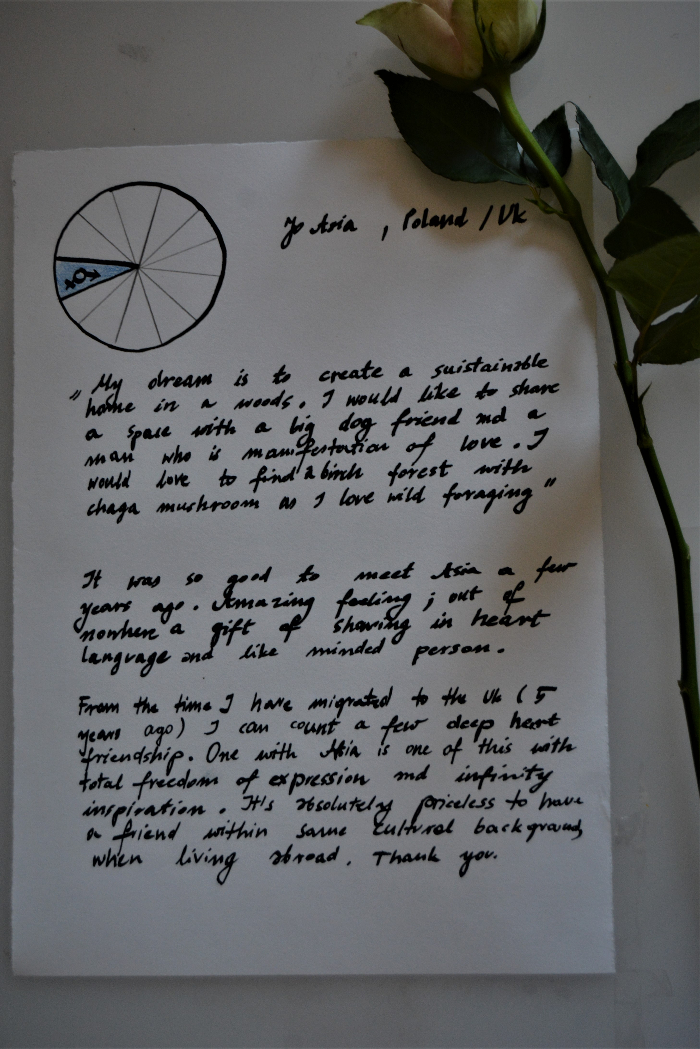 To Asia , Poland / Uk
"My dream is to create a suistainable
home in a woods. I would like to share
a space with a big dog friend and a
man who is manifestation of love. I
would love to find a birch forest with
chaga mushroom as I love wild foraging"
It was so good to meet Asia a few
years ago. Amazing feeling; out of
nowhere a gift of showing in heart
language and like minded person.
From the time I have migrated to the Uk (5
years ago) I can count a few deep heart
friendship. One with Asia is one of this with
total freedom of expression and infinity
inspiration. It's absolutely priceless to have
a friend within same cultural background
when living abroad. Thank you.